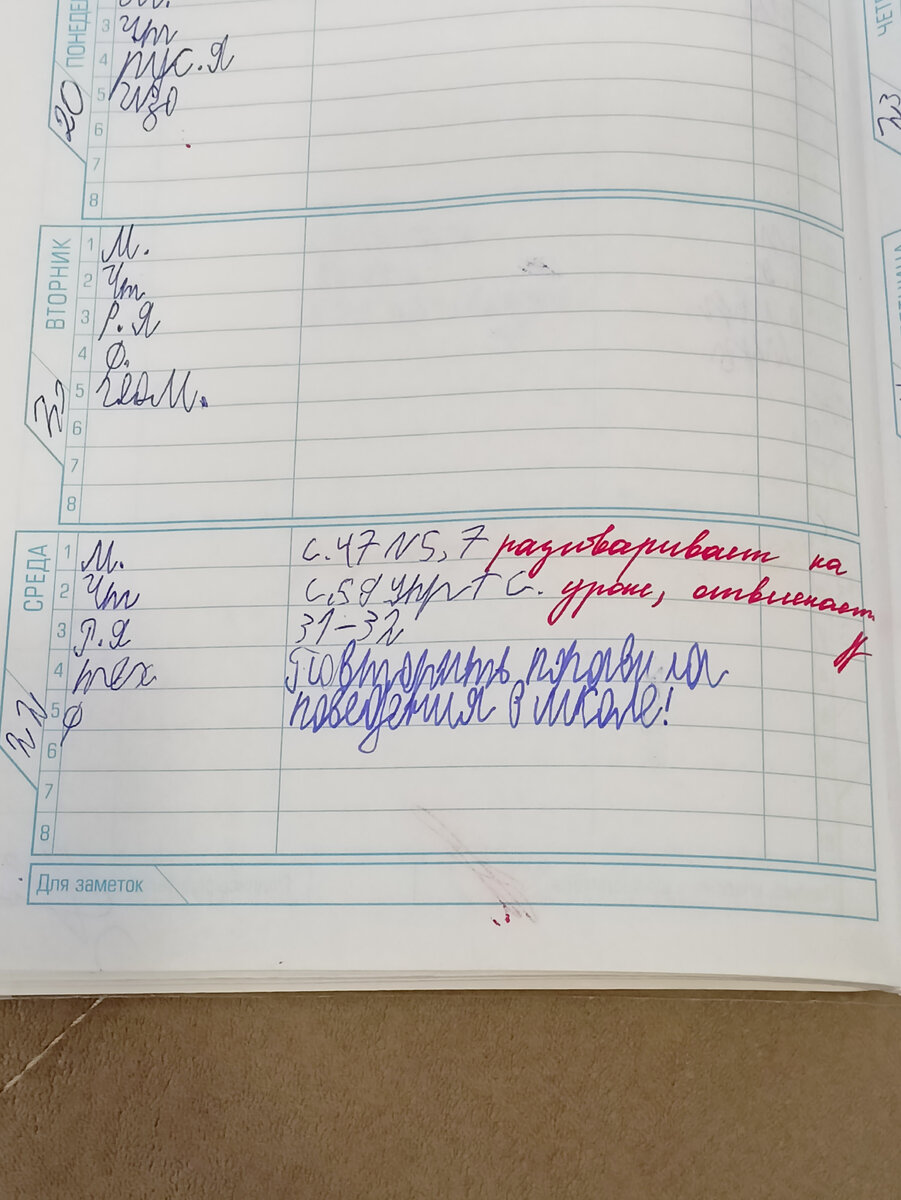 ПОНЕДЕ
20
3 Чт
4 рус.Я
5 Изо
6
7
8
ЧЕТ
23
ВТОРНИК
1 М.
2 Чт
3 Р.Я
4 Ф.
5 геом.
6
7
8
СРЕДА
22
1 М. с.47 №5,7 разговаривает на
2 Чт с.59 упр+с. уроке, отвлекает
3 Р.Я 31-32
4 тех Повторить правила
5 Ф поведения в школе!
6
7
8
Для заметок